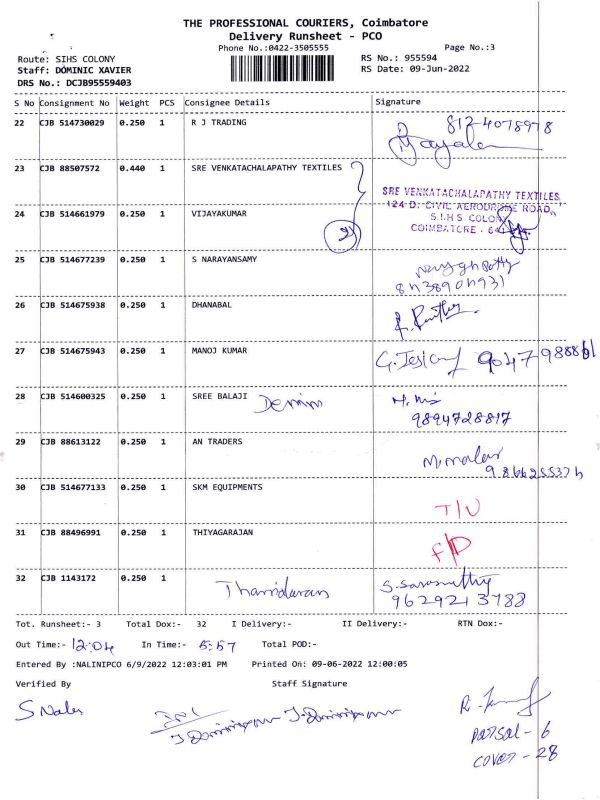 THE PROFESSIONAL COURIERS, Coimbatore
Delivery Runsheet - PCO
Phone No.:0422-3505555 Page No.:3
Route: SIHS COLONY RS No.: 955594
Staff: DOMINIC XAVIER RS Date: 09-Jun-2022
DRS No.: DCJB95559403
S No Consignment No Weight PCS Consignee Details Signature
22 CJB 514730029 0.250 1 R J TRADING 8124078978
23 CJB 88507572 0.440 1 SRE VENKATACHALAPATHY TEXTILES
SRE VENKATACHALAPATHY TEXTILES,
124 D. CIVIL AERODROME ROAD,
24 CJB 514661979 0.250 1 VIJAYAKUMAR 2 S.I.H.S COLONY
COIMBATORE - 641
25 CJB 514677239 0.250 1 S NARAYANSAMY
26 CJB 514675938 0.250 1 DHANABAL
27 CJB 514675943 0.250 1 MANOJ KUMAR
28 CJB 514600325 0.250 1 SREE BALAJI Denim
9894728817
29 CJB 88613122 0.250 1 AN TRADERS
M.malar
30 CJB 514677133 0.250 1 SKM EQUIPMENTS
T/U
31 CJB 88496991 0.250 1 THIYAGARAJAN F/D
32 CJB 1143172 0.250 1
9629213788
Tot. Runsheet:- 3 Total Dox:- 32 I Delivery:- II Delivery:- RTN Dox:-
Out Time:- 12:04 In Time:- 5:57 Total POD:-
Entered By :NALINIPCO 6/9/2022 12:03:01 PM Printed On: 09-06-2022 12:00:05
Verified By Staff Signature
Parsal - 6
Cover - 28